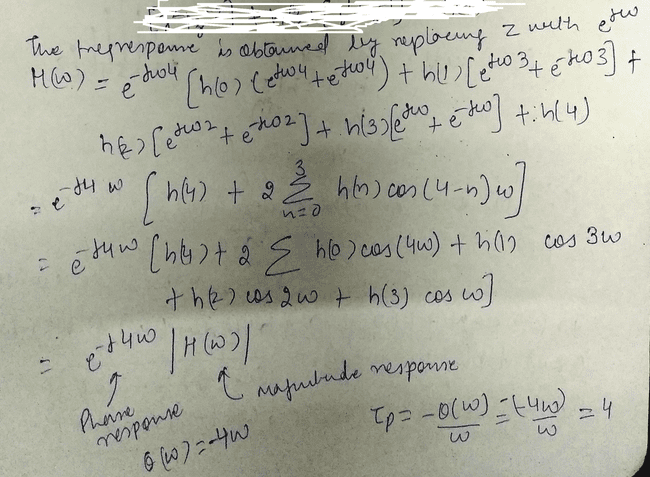 The freqresponse is obtained by replacing z with e^jω
H(ω) = e^-jω4 [h(0) (e^jω4 + e^-jω4) + h(1) [e^jω3 + e^-jω3] +
h(2) [e^jω2 + e^-jω2] + h(3) [e^jω + e^-jω] + h(4)
= e^-j4ω [h(4) + 2 3 Σ n=0 h(n) cos (4-n) ω]
= e^-j4ω [h(4) + 2 Σ h(0) cos(4ω) + h(1) cos 3ω
+ h(2) cos 2ω + h(3) cos ω]
= e^-j4ω |H(ω)|
Phase response
magnitude response
θ(ω) = -4ω
τp = -θ(ω)/ω = -(-4ω)/ω = 4